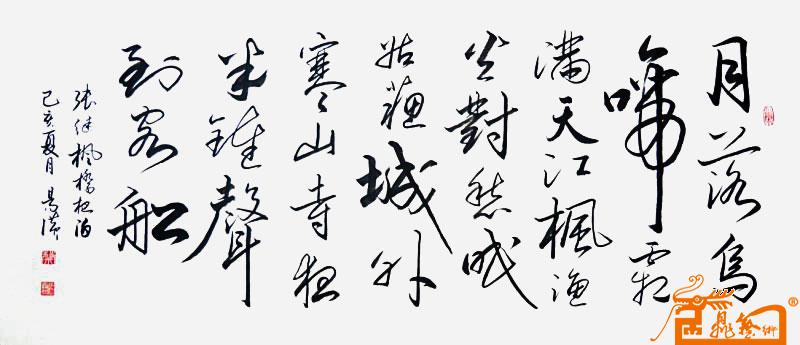 月落烏
啼霜
滿天江楓漁
火對愁眠
姑蘇城外
寒山寺夜
半鐘聲
到客船
張继楓橋夜泊
己亥夏月
藝術
®